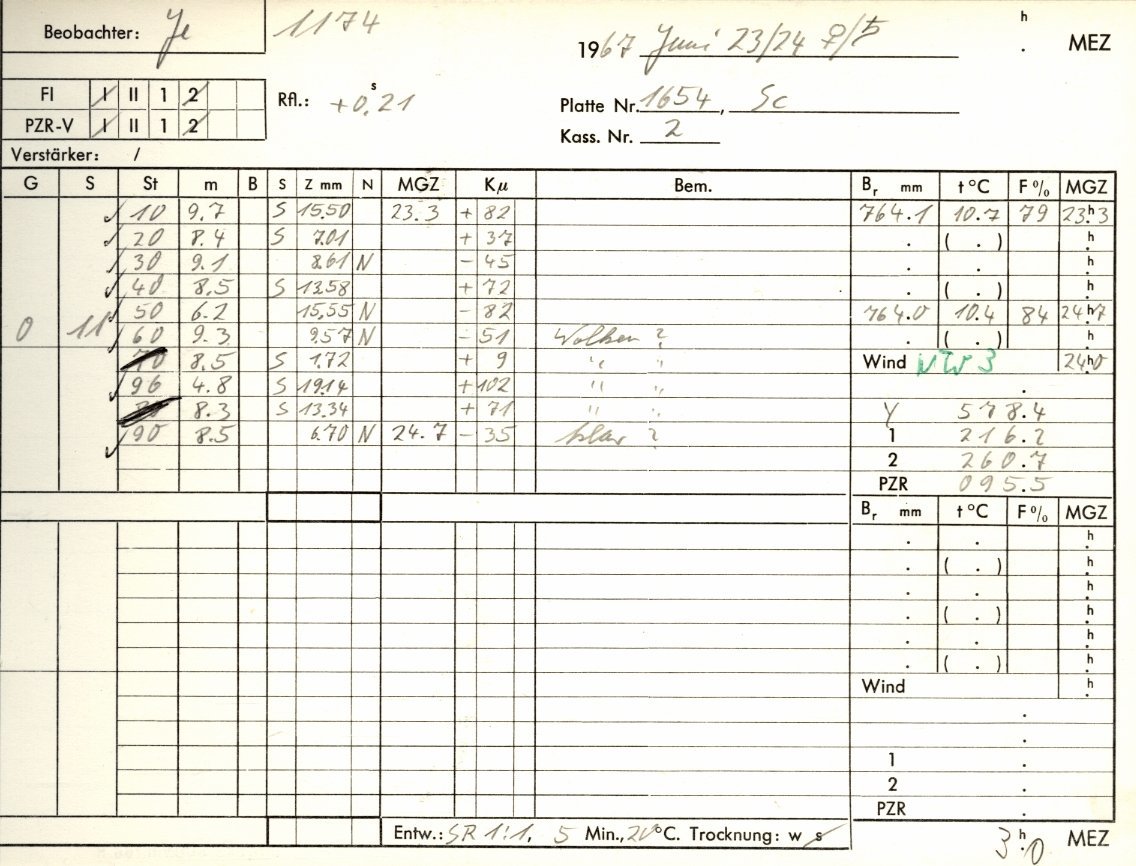 Beobachter: Je 1174
1967 Juni 23/24 ♀/♄ h . MEZ
FI I II 1 2
PZR-V I II 1 2
Rfl.: +0.s21
Platte Nr. 1654, Sc
Kass. Nr. 2
Verstärker: /
G S St m B S Z mm N MGZ Kμ Bem. Br mm t °C F % MGZ
✓ 10 9.7 S 15.50 23.3 + 82 764.1 10.7 79 23h3
✓ 20 8.4 S 7.01 + 37 . ( . ) h
✓ 30 9.1 8.61 N - 45 . . h
✓ 40 8.5 S 13.58 + 72 . ( . ) h
✓ 50 6.2 15.55 N - 82 764.0 10.4 84 24h7
0 11 ✓ 60 9.3 9.57 N - 51 Wolken ? . ( . ) h
8.5 S 1.72 + 9 " " Wind NW 3 24h0
✓ 96 4.8 S 19.14 +102 " " .
8.3 S 13.34 + 71 " " Y 578.4
✓ 90 8.5 6.70 N 24.7 - 35 klar ? 1 216.2
2 260.7
PZR 095.5
Br mm t °C F % MGZ
. . h
. ( . ) h
. . h
. ( . ) h
. . h
. ( . ) h
Wind h
.
.
1 .
2 .
PZR .
Entw.: SR 1:1, 5 Min., 20°C. Trocknung: w s
3h.0 MEZ